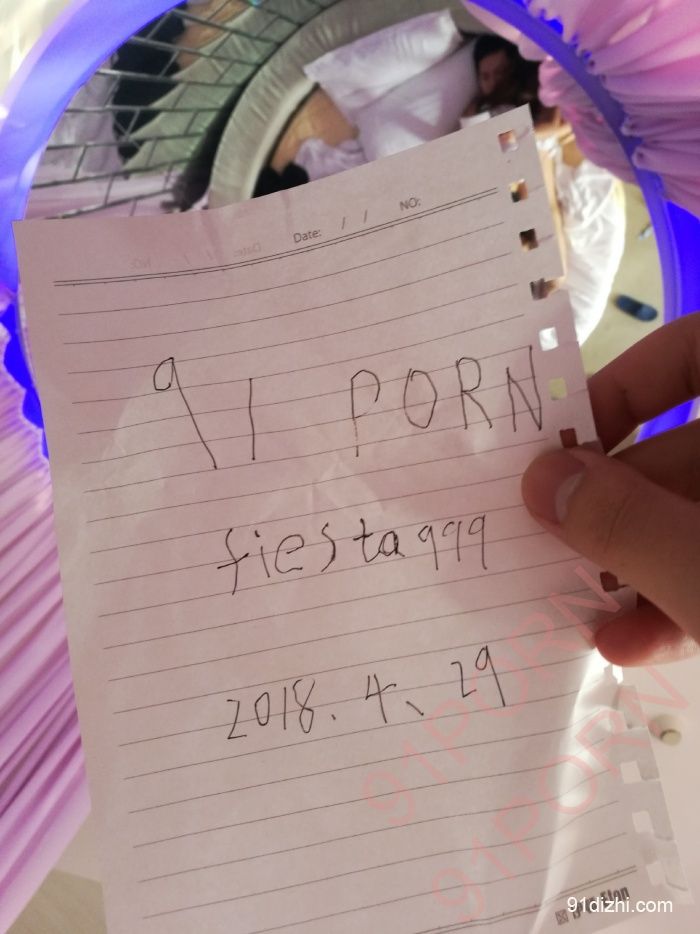 Date: / / NO:
91 PORN
fiesta999
2018.4、29
91PORN
91PORN
91dizhi.com